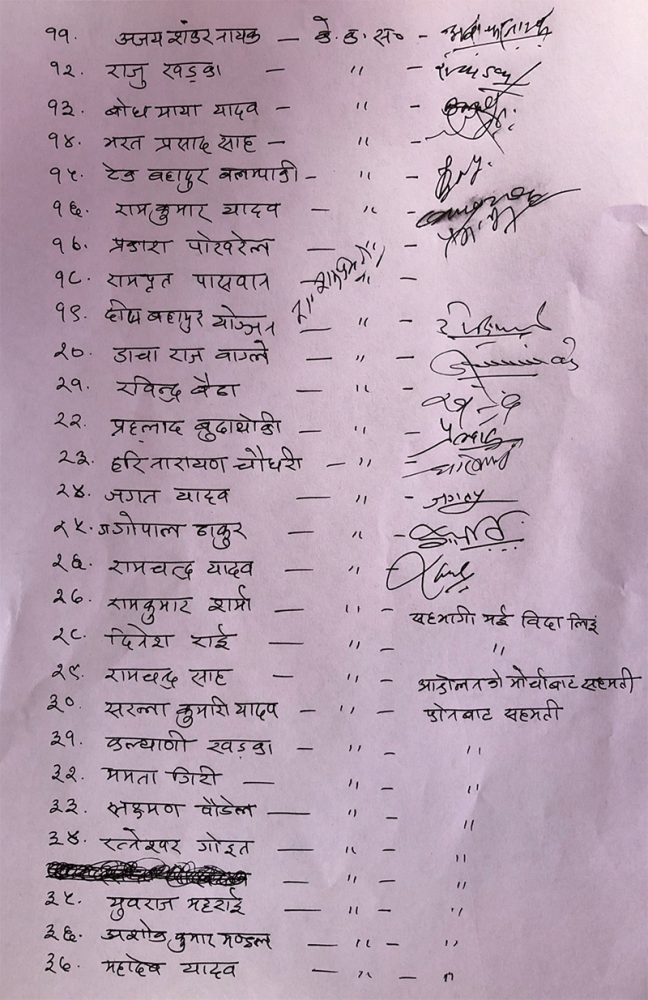 ११. अजय शंकर नायक — के. क. स० -
१२. राजु खड्का — " -
१३. बोध माया यादव — " -
१४. भरत प्रसाद साह — " -
१५. टेक बहादुर बलम्पाकी - " -
१६. रामकुमार यादव — " -
१७. प्रकाश पोखरेल — " -
१८. रामपृत पासवान — " -
१९. दीप बहादुर योञ्जन — " -
२०. डाचा राज वाग्ले — " -
२१. रविन्द्र बैठा — " -
२२. प्रह्लाद बुढाथोकी — " -
२३. हरिनारायण चौधरी — " -
२४. जगत यादव — " - जगत
२५. जगोपाल ठाकुर — " -
२६. रामचन्द्र यादव — " -
२७. रामकुमार शर्मा — " - सहभागी भई विदा लिई
२८. दिनेश राई — " - "
२९. रामचन्द्र साह — " - आन्दोलनको मोर्चाबाट सहमती
३०. सरला कुमारी यादव — " - फोनबाट सहमती
३१. कल्याणी खड्का — " - "
३२. ममता गिरी — " - "
३३. लक्ष्मण पौडेल — " - "
३४. रत्नेश्वर गोइत — " - "
— " - "
३५. युवराज भट्टराई — " - "
३६. अशोक कुमार मण्डल — " - "
३७. महादेव यादव — " - "